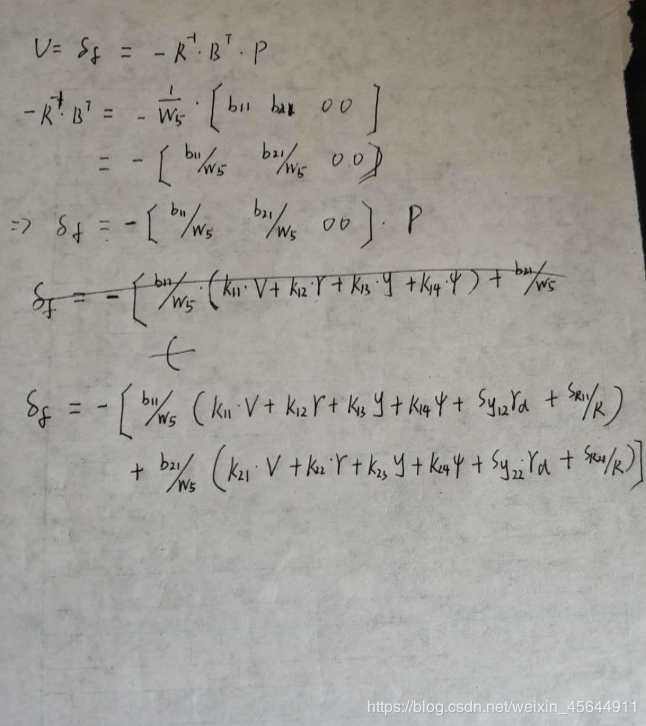 U = δf = - R⁻¹ · Bᵀ · P
- R⁻¹ · Bᵀ = - 1/W5 · [ b11 b21 0 0 ]
= - [ b11/W5 b21/W5 0 0 ]
=> δf = - [ b11/W5 b21/W5 0 0 ] · P
δf = - [ b11/W5 · ( k11 · V + k12 · r + k13 · y + k14 · ψ ) + b21/W5
(
δf = - [ b11/W5 ( k11 · V + k12 r + k13 y + k14 ψ + Sy12 rd + SR11/R )
+ b21/W5 ( k21 · V + k22 · r + k23 y + k24 ψ + Sy22 · rd + SR21/R ) ]
https://blog.csdn.net/weixin_45644911